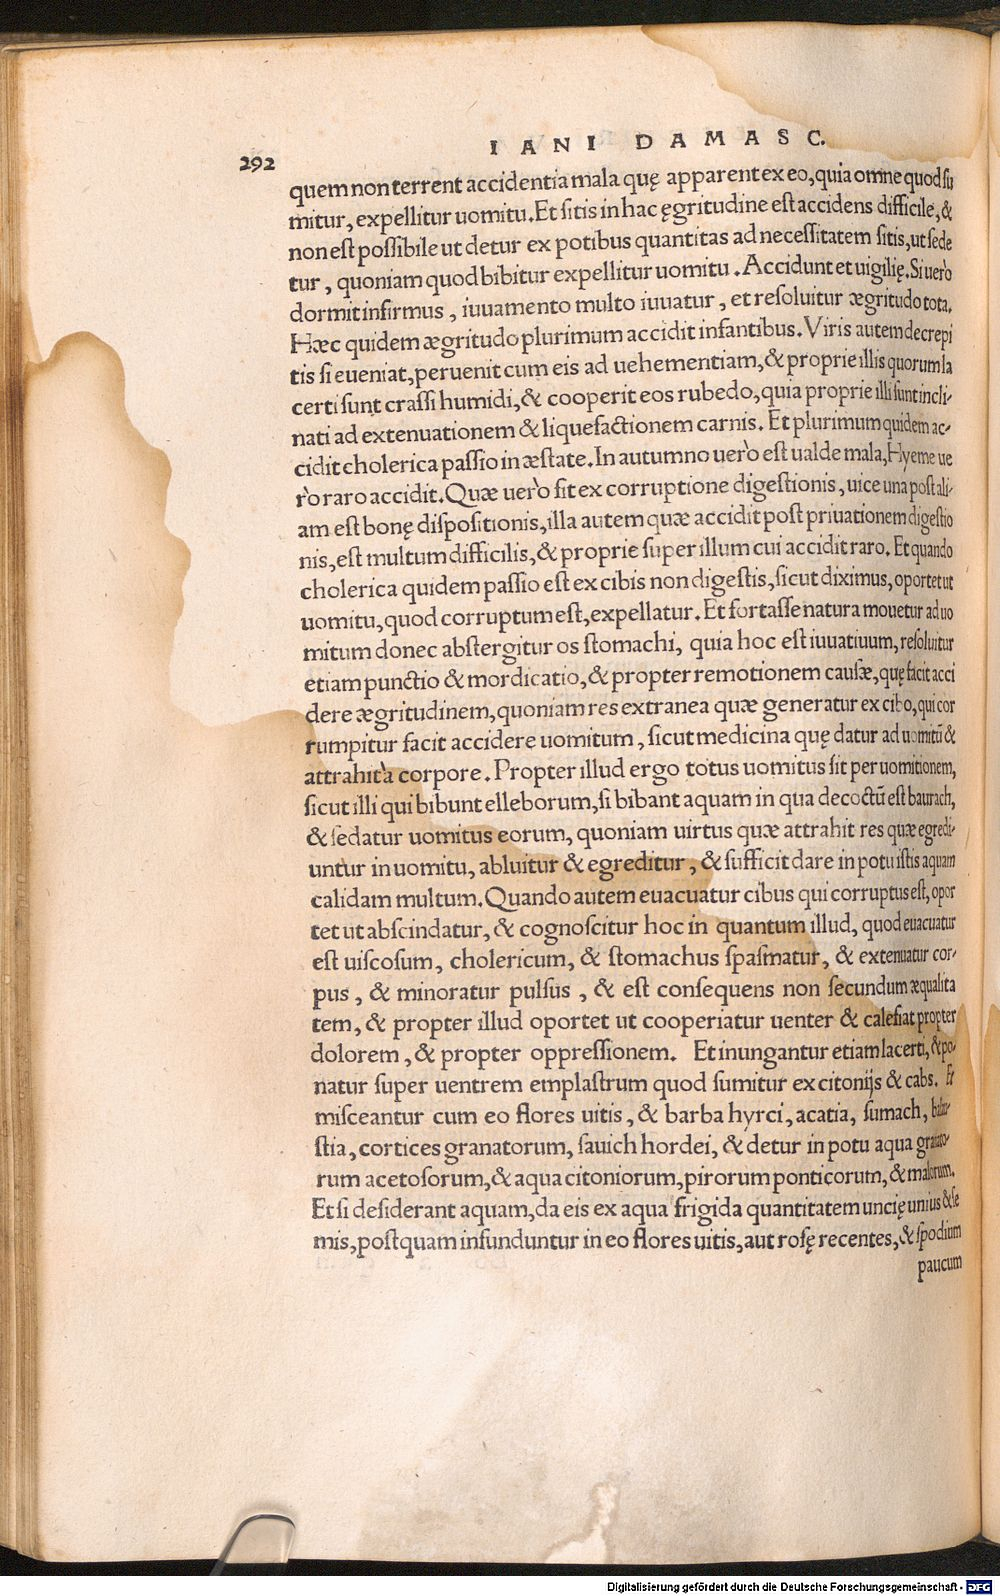 292
IANI DAMASC.
quem non terrent accidentia mala quę apparent ex eo, quia omne quod su
mitur, expellitur uomitu. Et sitis in hac ęgritudine est accidens difficile, &
non est possibile ut detur ex potibus quantitas ad necessitatem sitis, ut sede
tur, quoniam quod bibitur expellitur uomitu. Accidunt et uigilię. Si uerò
dormit infirmus, iuuamento multo iuuatur, et resoluitur ægritudo tota.
Hæc quidem ægritudo plurimum accidit infantibus. Viris autem decrepi
tis si eueniat, peruenit cum eis ad uehementiam, & proprie illis quorum la
certi sunt crassi humidi, & cooperit eos rubedo, quia proprie illi sunt incli-
nati ad extenuationem & liquefactionem carnis. Et plurimum quidem ac-
cidit cholerica passio in æstate. In autumno uerò est ualde mala, Hyeme ue
rò raro accidit. Quæ uerò fit ex corruptione digestionis, uice una post ali-
am est bonę dispositionis, illa autem quæ accidit post priuationem digestio
nis, est multum difficilis, & proprie super illum cui accidit raro. Et quando
cholerica quidem passio est ex cibis non digestis, sicut diximus, oportet ut
uomitu, quod corruptum est, expellatur. Et fortasse natura mouetur ad uo
mitum donec abstergitur os stomachi, quia hoc est iuuatiuum, resoluitur
etiam punctio & mordicatio, & propter remotionem causæ, quę facit acci
dere ægritudinem, quoniam res extranea quæ generatur ex cibo, qui cor
rumpitur facit accidere uomitum, sicut medicina quę datur ad uomitũ &
attrahit à corpore. Propter illud ergo totus uomitus fit per uomitionem,
sicut illi qui bibunt elleborum, si bibant aquam in qua decoctũ est baurach,
& sedatur uomitus eorum, quoniam uirtus quæ attrahit res quæ egredi-
untur in uomitu, abluitur & egreditur, & sufficit dare in potu istis aquam
calidam multum. Quando autem euacuatur cibus qui corruptus est, opor
tet ut abscindatur, & cognoscitur hoc in quantum illud, quod euacuatur
est uiscosum, cholericum, & stomachus spasmatur, & extenuatur cor-
pus, & minoratur pulsus, & est consequens non secundum æqualita
tem, & propter illud oportet ut cooperiatur uenter & calefiat propter
dolorem, & propter oppressionem. Et inungantur etiam lacerti, & po-
natur super uentrem emplastrum quod sumitur ex citonijs & cabs. Et
misceantur cum eo flores uitis, & barba hyrci, acatia, sumach, balau-
stia, cortices granatorum, sauich hordei, & detur in potu aqua granato-
rum acetosorum, & aqua citoniorum, pirorum ponticorum, & malorum.
Et si desiderant aquam, da eis ex aqua frigida quantitatem uncię unius & se
mis, postquam infunduntur in eo flores uitis, aut rosę recentes, & spodium
paucum
Digitalisierung gefördert durch die Deutsche Forschungsgemeinschaft - DFG